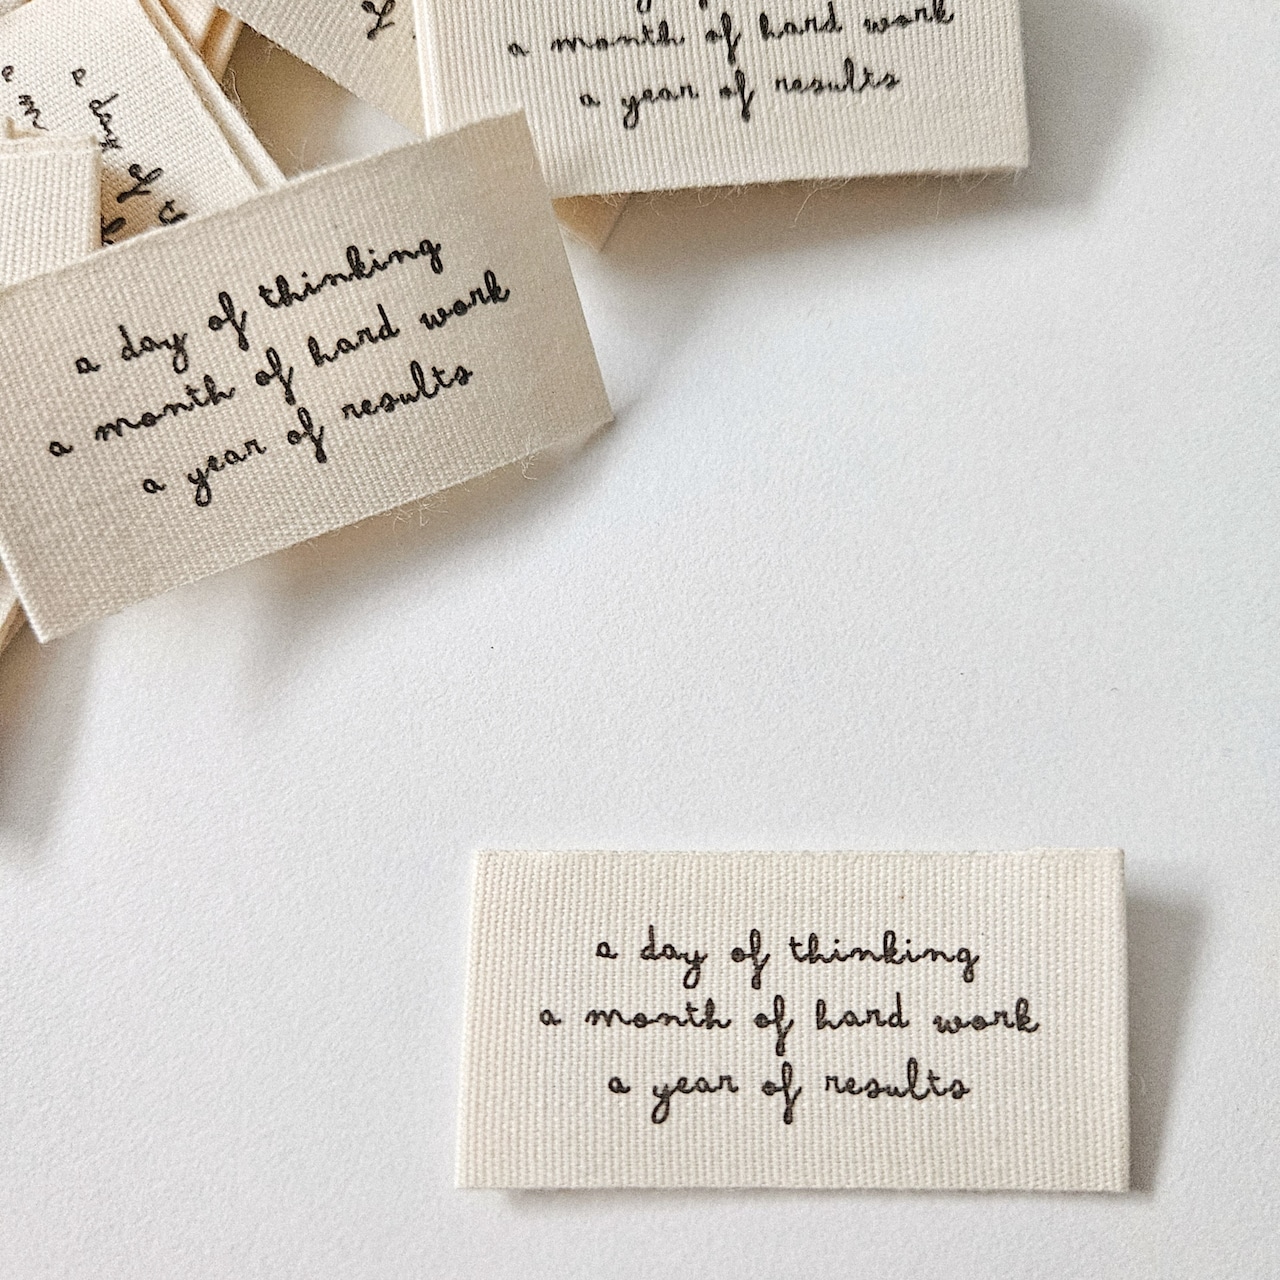 a month of hard work
a year of results
a day of thinking
a month of hard work
a year of results
a day of thinking
a month of hard work
a year of results